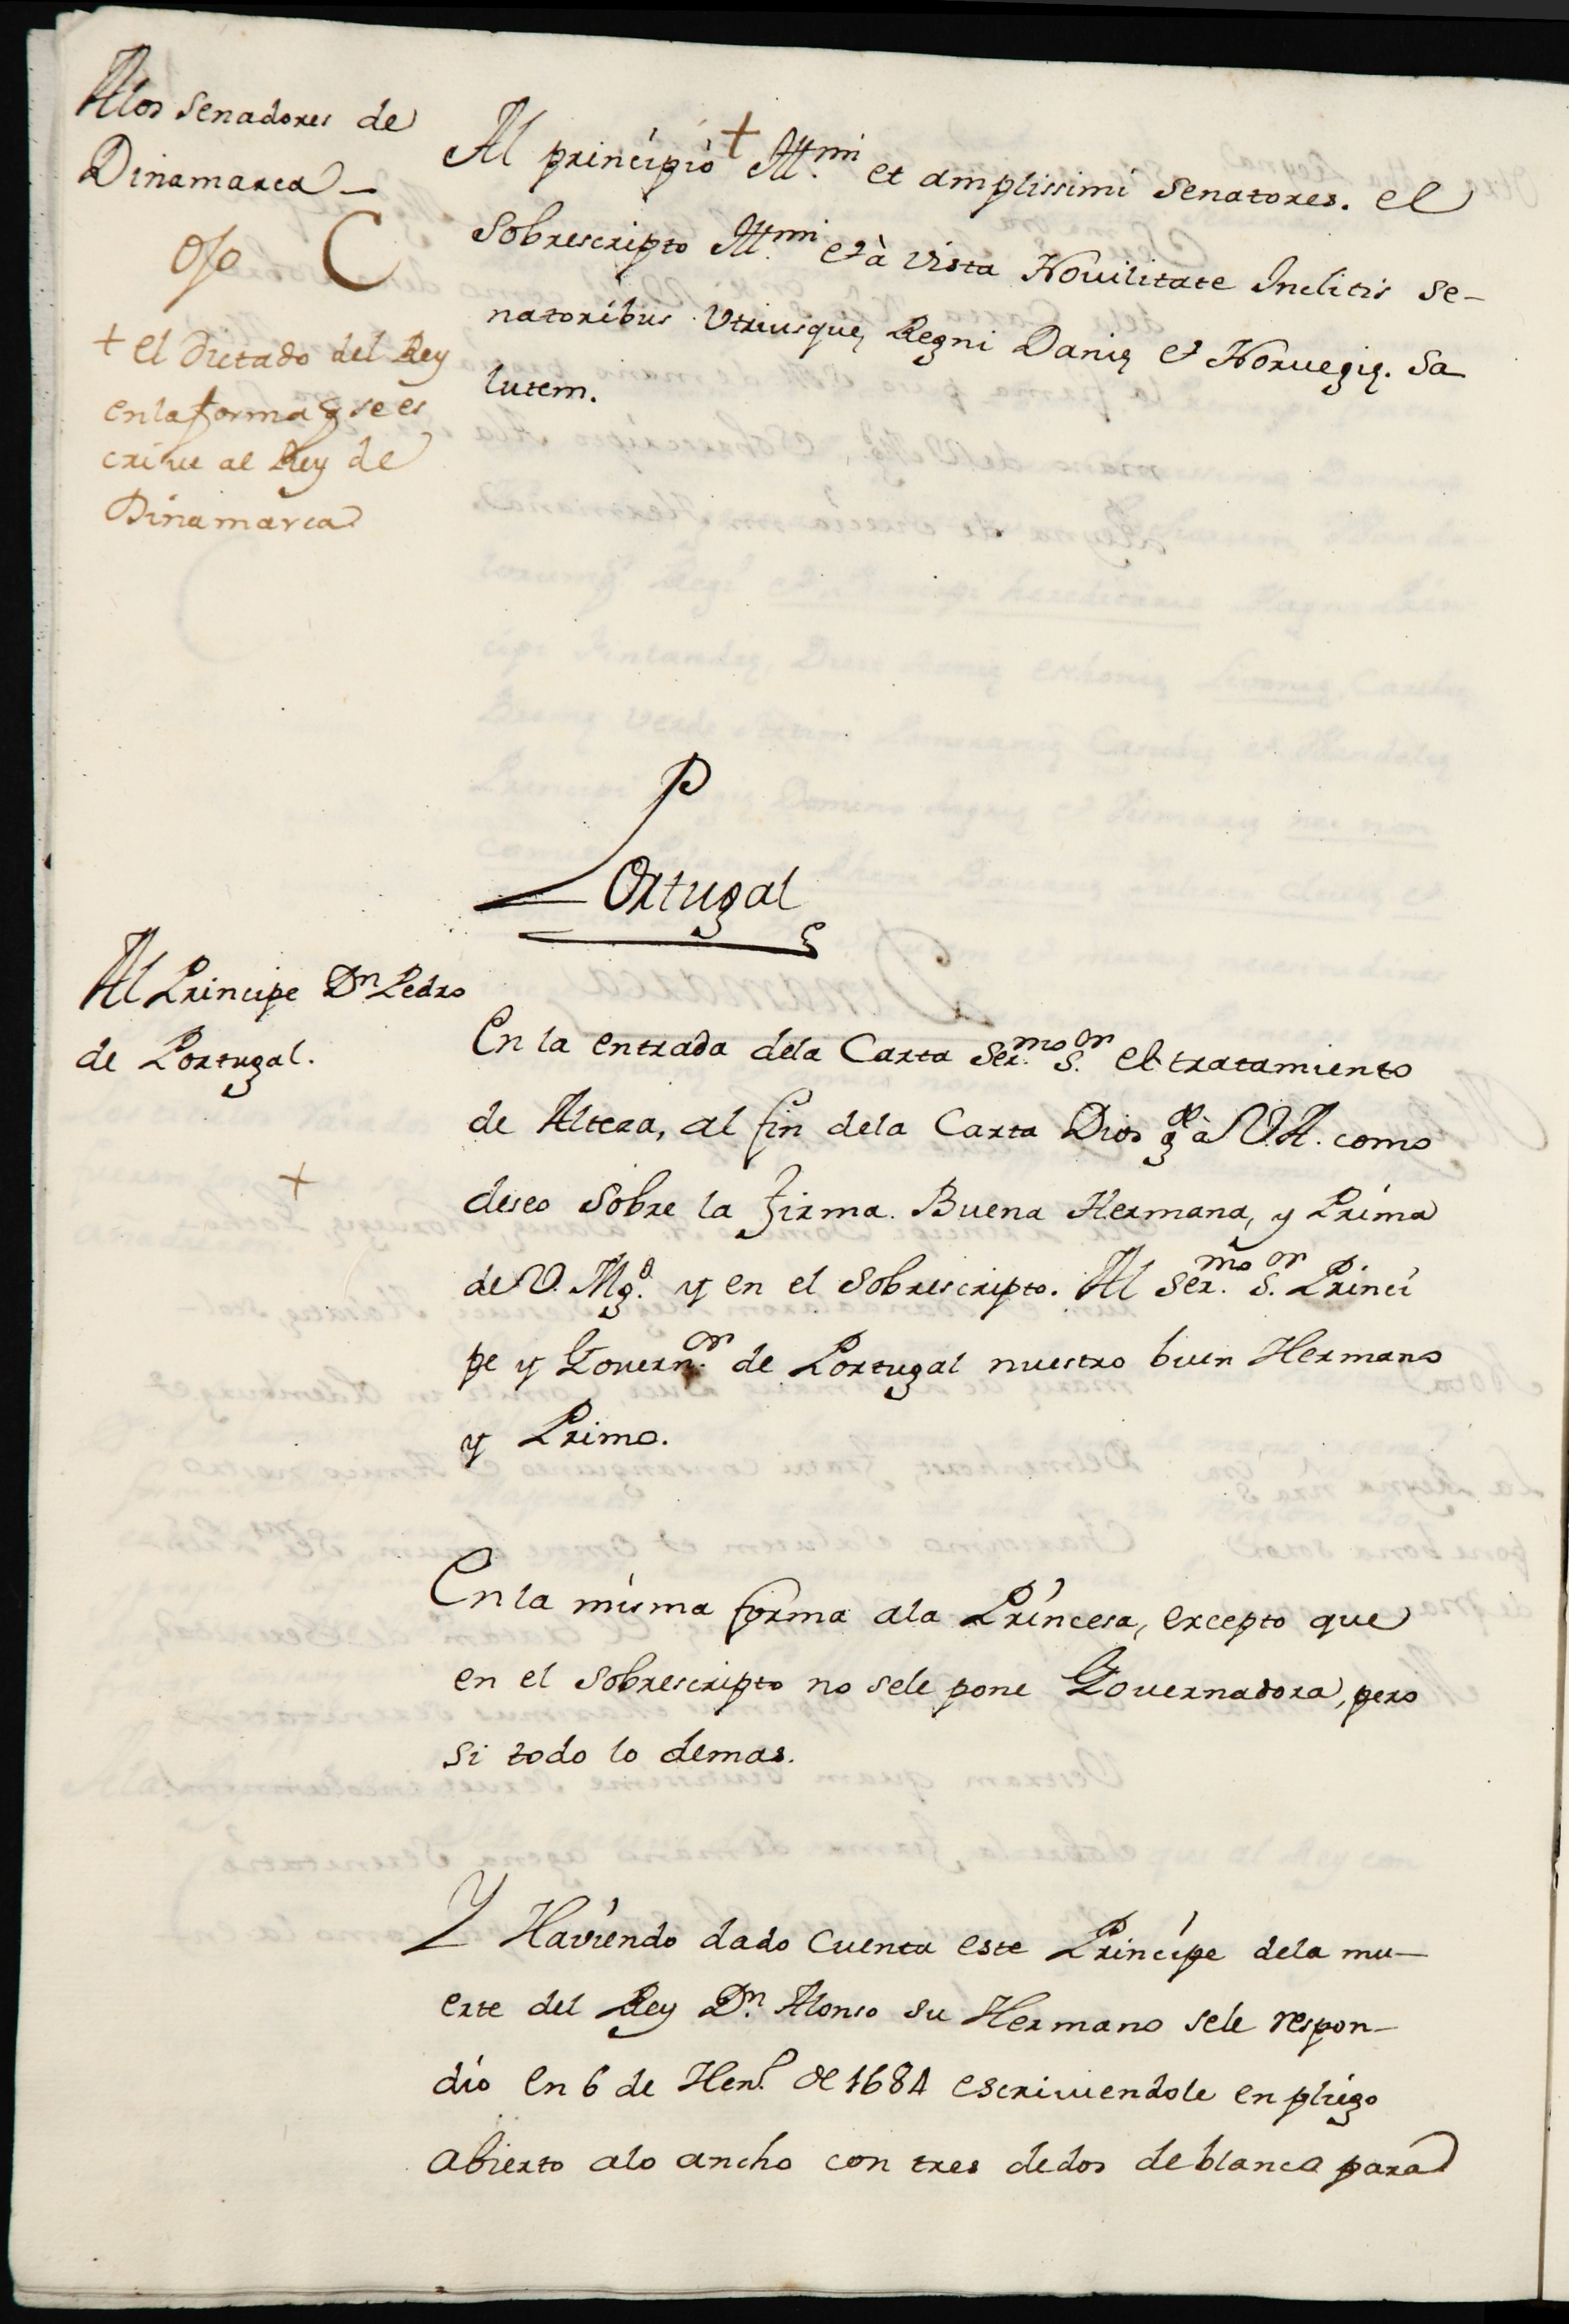 Alos Senadores de
Dinamarca –
ojo C
+ el Dictado del Rey
en la forma q se es
crive al Rey de
Dinamarca
Al principio + Ill.mi et amplissimi Senatores. el
Sobrescripto Ill.mi et à vista Novilitate Inclitis Se-
natoribus Utriusque Regni Danię et Norvegię. Sa
lutem.
Portugal
Al Principe Dn Pedro
de Portugal.
En la entrada dela Carta Ser.mo S.or el tratamiento
de Alteza, al fin dela Carta Dios g.e à V.A. como
+
deseo Sobre la firma. Buena Hermana, y Prima
de V. Mg.d y en el Sobrescripto. Al Ser.mo S.or Princi
pe y Govern.or de Portugal nuestro buen Hermano
y Primo.
En la misma forma ala Princesa, excepto que
en el Sobrescripto no sele pone Governadora, pero
si todo lo demas.
Y Haviendo dado Cuenta este Principe dela mu-
erte del Rey D.n Alonso su Hermano sele respon-
dio en 6 de Hen.o de 1684 escriviendole en pliego
abierto alo ancho con tres dedos de blanco para